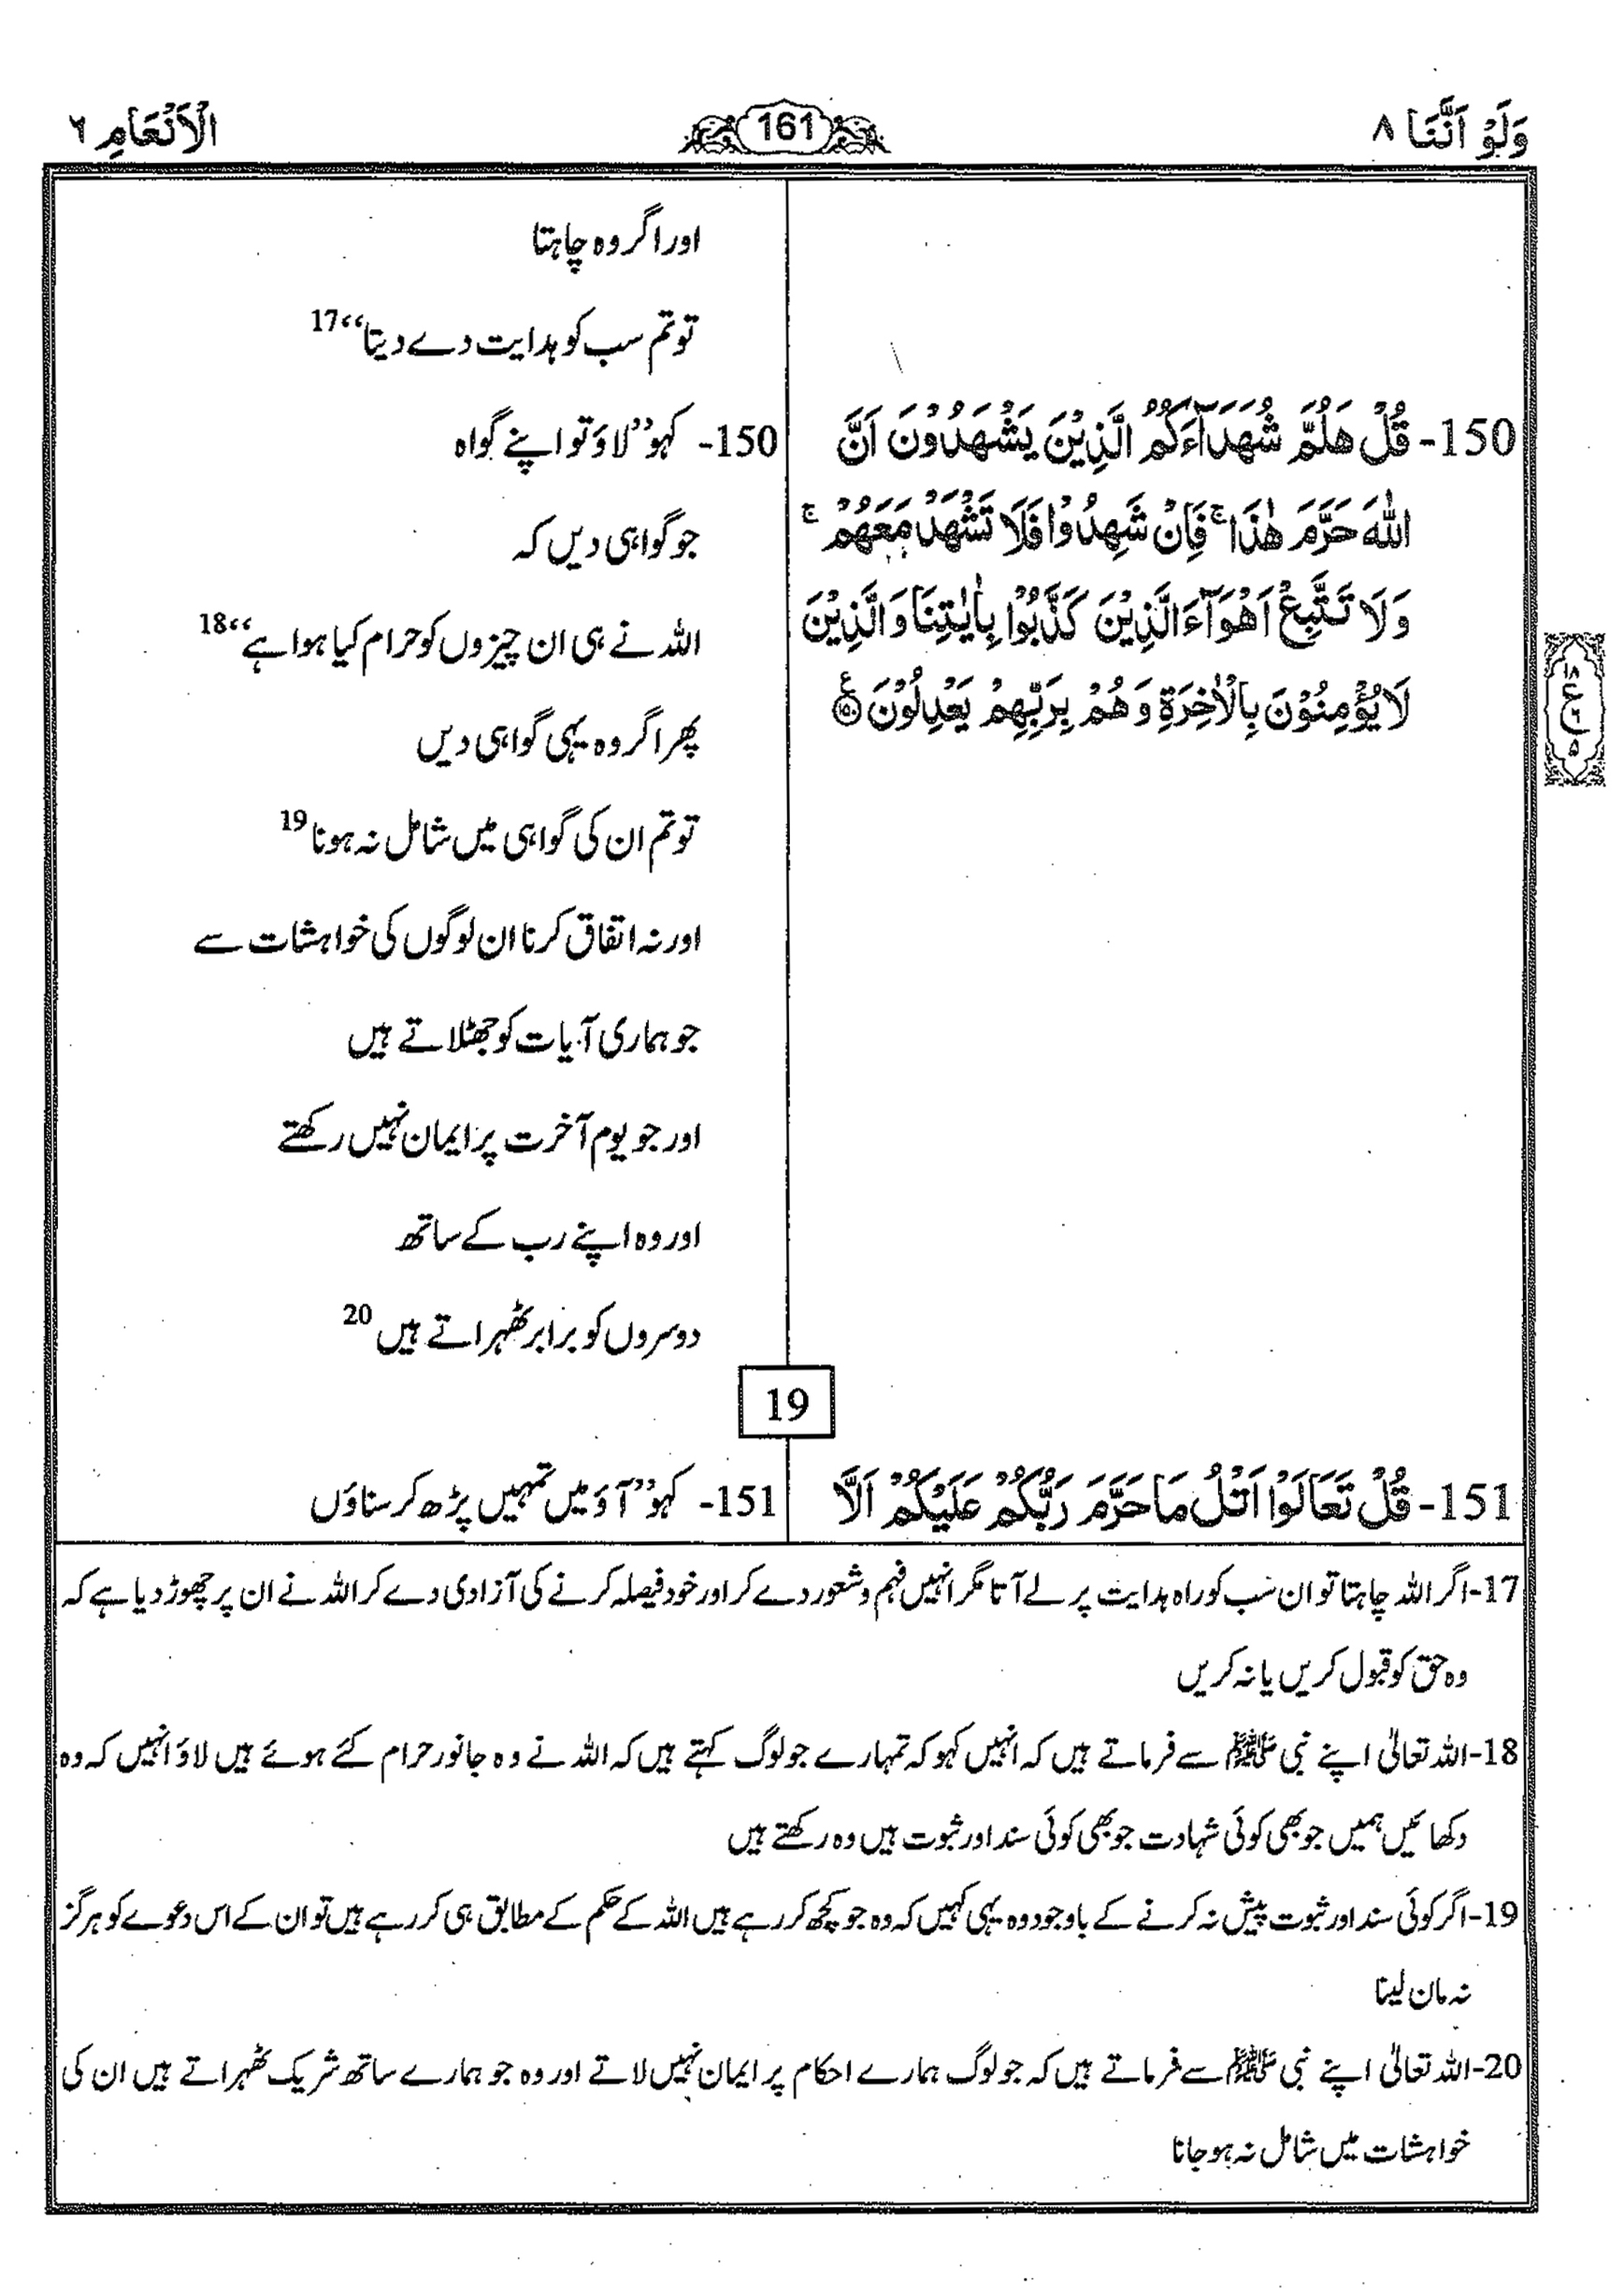 وَلَوْ اَنَّنَا ٨
161
الْاَنْعَامِ ٦
اور اگر وہ چاہتا
تو تم سب کو ہدایت دے دیتا“ 17
150- قُلْ هَلُمَّ شُهَدَآءَكُمُ الَّذِيْنَ يَشْهَدُوْنَ اَنَّ
اللّٰهَ حَرَّمَ هٰذَا ۚ فَاِنْ شَهِدُوْا فَلَا تَشْهَدْ مَعَهُمْ ۚ
وَلَا تَتَّبِعْ اَهْوَآءَ الَّذِيْنَ كَذَّبُوْا بِاٰيٰتِنَا وَالَّذِيْنَ
لَا يُؤْمِنُوْنَ بِالْاٰخِرَةِ وَهُمْ بِرَبِّهِمْ يَعْدِلُوْنَ ﴿۱۵۰﴾ ع
150- کہو ”لاؤ تو اپنے گواہ
جو گواہی دیں کہ
اللہ نے ہی ان چیزوں کو حرام کیا ہوا ہے“ 18
پھر اگر وہ یہی گواہی دیں
تو تم ان کی گواہی میں شامل نہ ہونا 19
اور نہ اتفاق کرنا ان لوگوں کی خواہشات سے
جو ہماری آیات کو جھٹلاتے ہیں
اور جو یوم آخرت پر ایمان نہیں رکھتے
اور وہ اپنے رب کے ساتھ
دوسروں کو برابر ٹھہراتے ہیں 20
19
151- قُلْ تَعَالَوْا اَتْلُ مَا حَرَّمَ رَبُّكُمْ عَلَيْكُمْ اَلَّا
151- کہو ”آؤ میں تمہیں پڑھ کر سناؤں
17- اگر اللہ چاہتا تو ان سب کو راہ ہدایت پر لے آتا مگر انہیں فہم و شعور دے کر اور خود فیصلہ کرنے کی آزادی دے کر اللہ نے ان پر چھوڑ دیا ہے کہ
وہ حق کو قبول کریں یا نہ کریں
18- اللہ تعالیٰ اپنے نبی ﷺ سے فرماتے ہیں کہ انہیں کہو کہ تمہارے جو لوگ کہتے ہیں کہ اللہ نے وہ جانور حرام کئے ہوئے ہیں لاؤ انہیں کہ وہ
دکھائیں ہمیں جو بھی کوئی شہادت جو بھی کوئی سند اور ثبوت ہیں وہ رکھتے ہیں
19- اگر کوئی سند اور ثبوت پیش نہ کرنے کے باوجود وہ یہی کہیں کہ وہ جو کچھ کر رہے ہیں اللہ کے حکم کے مطابق ہی کر رہے ہیں تو ان کے اس دعوے کو ہرگز
نہ مان لینا
20- اللہ تعالیٰ اپنے نبی ﷺ سے فرماتے ہیں کہ جو لوگ ہمارے احکام پر ایمان نہیں لاتے اور وہ جو ہمارے ساتھ شریک ٹھہراتے ہیں ان کی
خواہشات میں شامل نہ ہو جانا